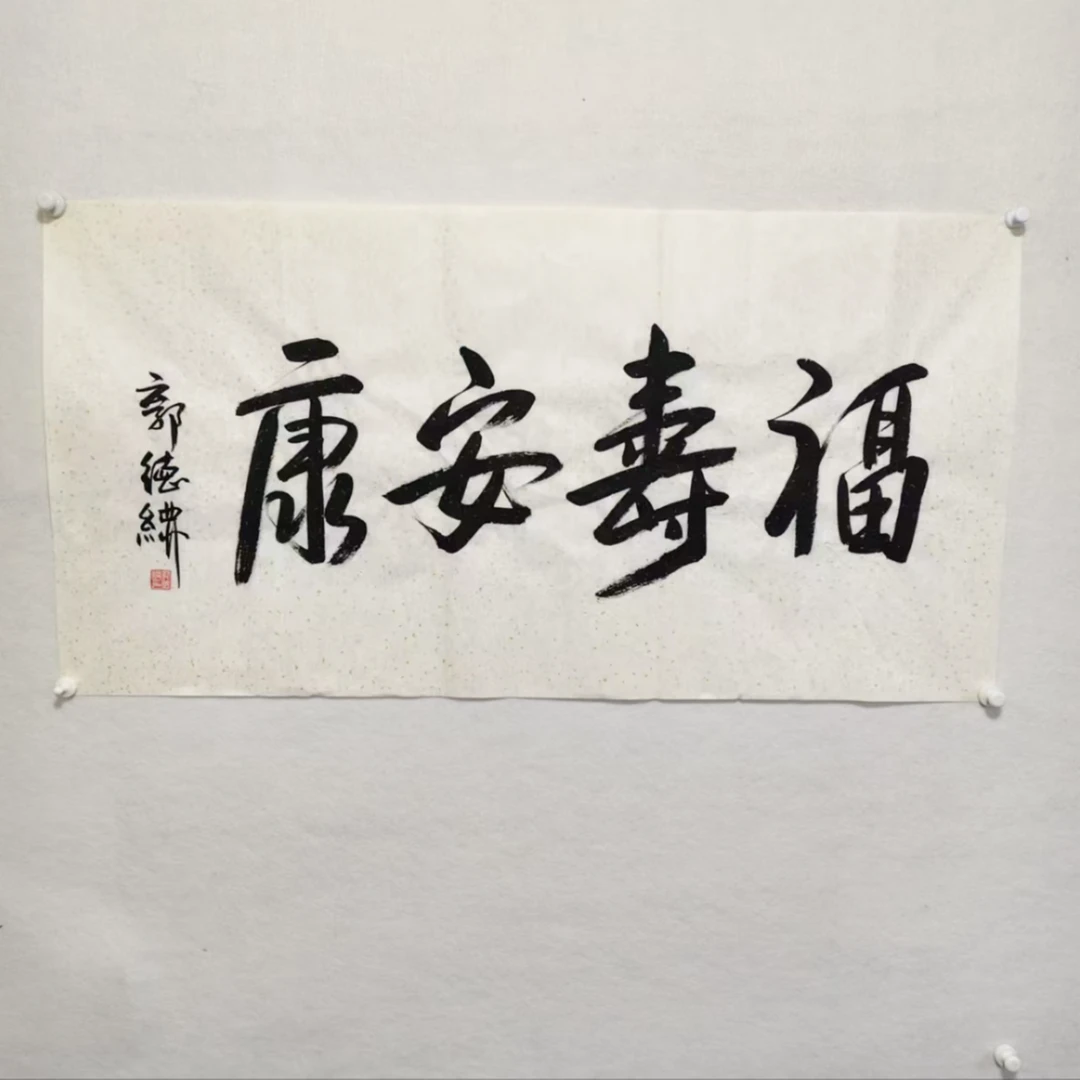 福壽安康
郭德綱